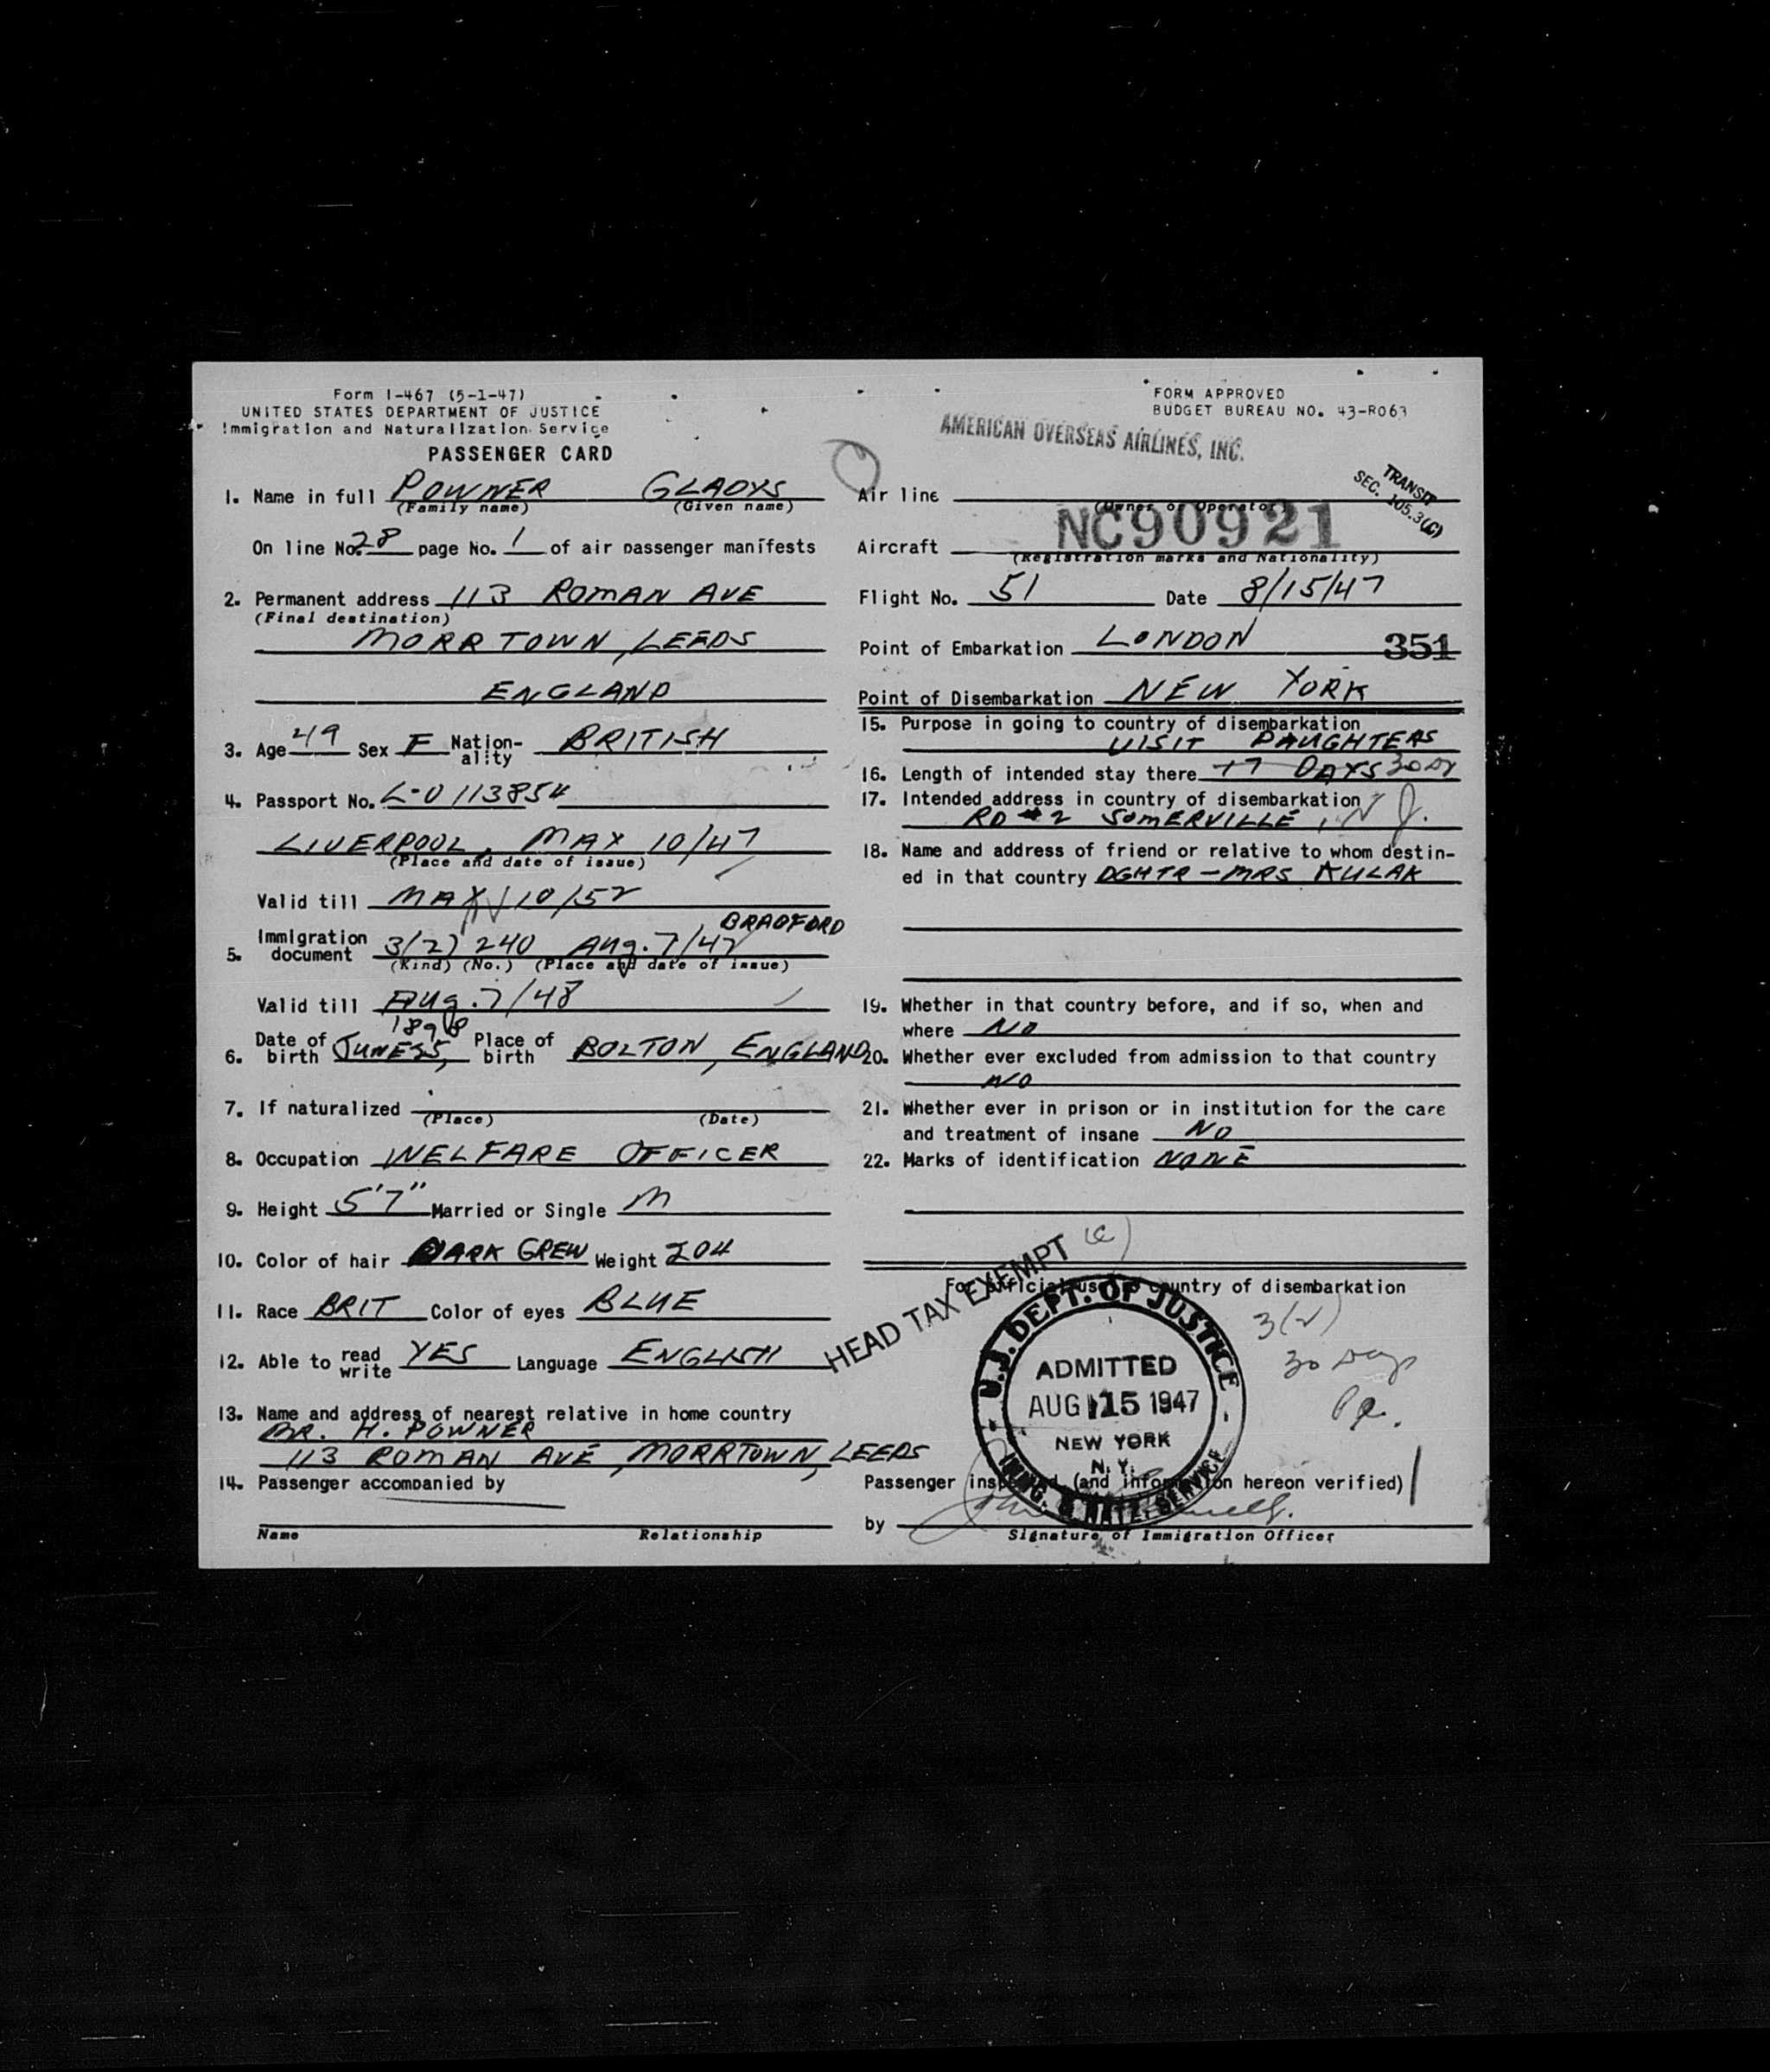 Form I-467 (5-1-47)
UNITED STATES DEPARTMENT OF JUSTICE
Immigration and Naturalization Service
PASSENGER CARD
FORM APPROVED
BUDGET BUREAU NO. 43-R063
AMERICAN OVERSEAS AIRLINES, INC.
TRANSIT
SEC. 105.3(C)
1. Name in full POWNER GLADYS
(Family name) (Given name)
On line No. 28 page No. 1 of air passenger manifests
2. Permanent address 113 ROMAN AVE
(Final destination)
MORRTOWN, LEEDS
ENGLAND
3. Age 49 Sex F Nation-ality BRITISH
4. Passport No. L-0113854
LIVERPOOL, MAY 10/47
(Place and date of issue)
Valid till MAY 10/52
BRADFORD
5. Immigration document 3(2) 240 Aug. 7/47
(Kind) (No.) (Place and date of issue)
Valid till Aug. 7/48
1898
6. Date of birth JUNE 25, Place of birth BOLTON, ENGLAND
7. If naturalized
(Place) (Date)
8. Occupation WELFARE OFFICER
9. Height 5'7" Married or Single M
10. Color of hair DARK GREW Weight 204
11. Race BRIT Color of eyes BLUE
12. Able to read write YES Language ENGLISH
13. Name and address of nearest relative in home country
MR. H. POWNER
113 ROMAN AVE, MORRTOWN, LEEDS
14. Passenger accompanied by
Name Relationship
Air line
(Owner or Operator)
NC90921
Aircraft
(Registration marks and Nationality)
Flight No. 51 Date 8/15/47
Point of Embarkation LONDON 351
Point of Disembarkation NEW YORK
15. Purpose in going to country of disembarkation
VISIT DAUGHTERS
16. Length of intended stay there 17 DAYS 30
17. Intended address in country of disembarkation
RD #2 SOMERVILLE, N J.
18. Name and address of friend or relative to whom destin-
ed in that country DGHTR - MRS KULAK
19. Whether in that country before, and if so, when and
where NO
20. Whether ever excluded from admission to that country
NO
21. Whether ever in prison or in institution for the care
and treatment of insane NO
22. Marks of identification NONE
HEAD TAX EXEMPT (c)
For official use in country of disembarkation
U.S. DEPT. OF JUSTICE
ADMITTED
AUG 15 1947
NEW YORK
N.Y.
IMMG. & NATZ. SERVICE
3(2)
30 Days
Passenger inspected (and information hereon verified)
by
Signature of Immigration Officer